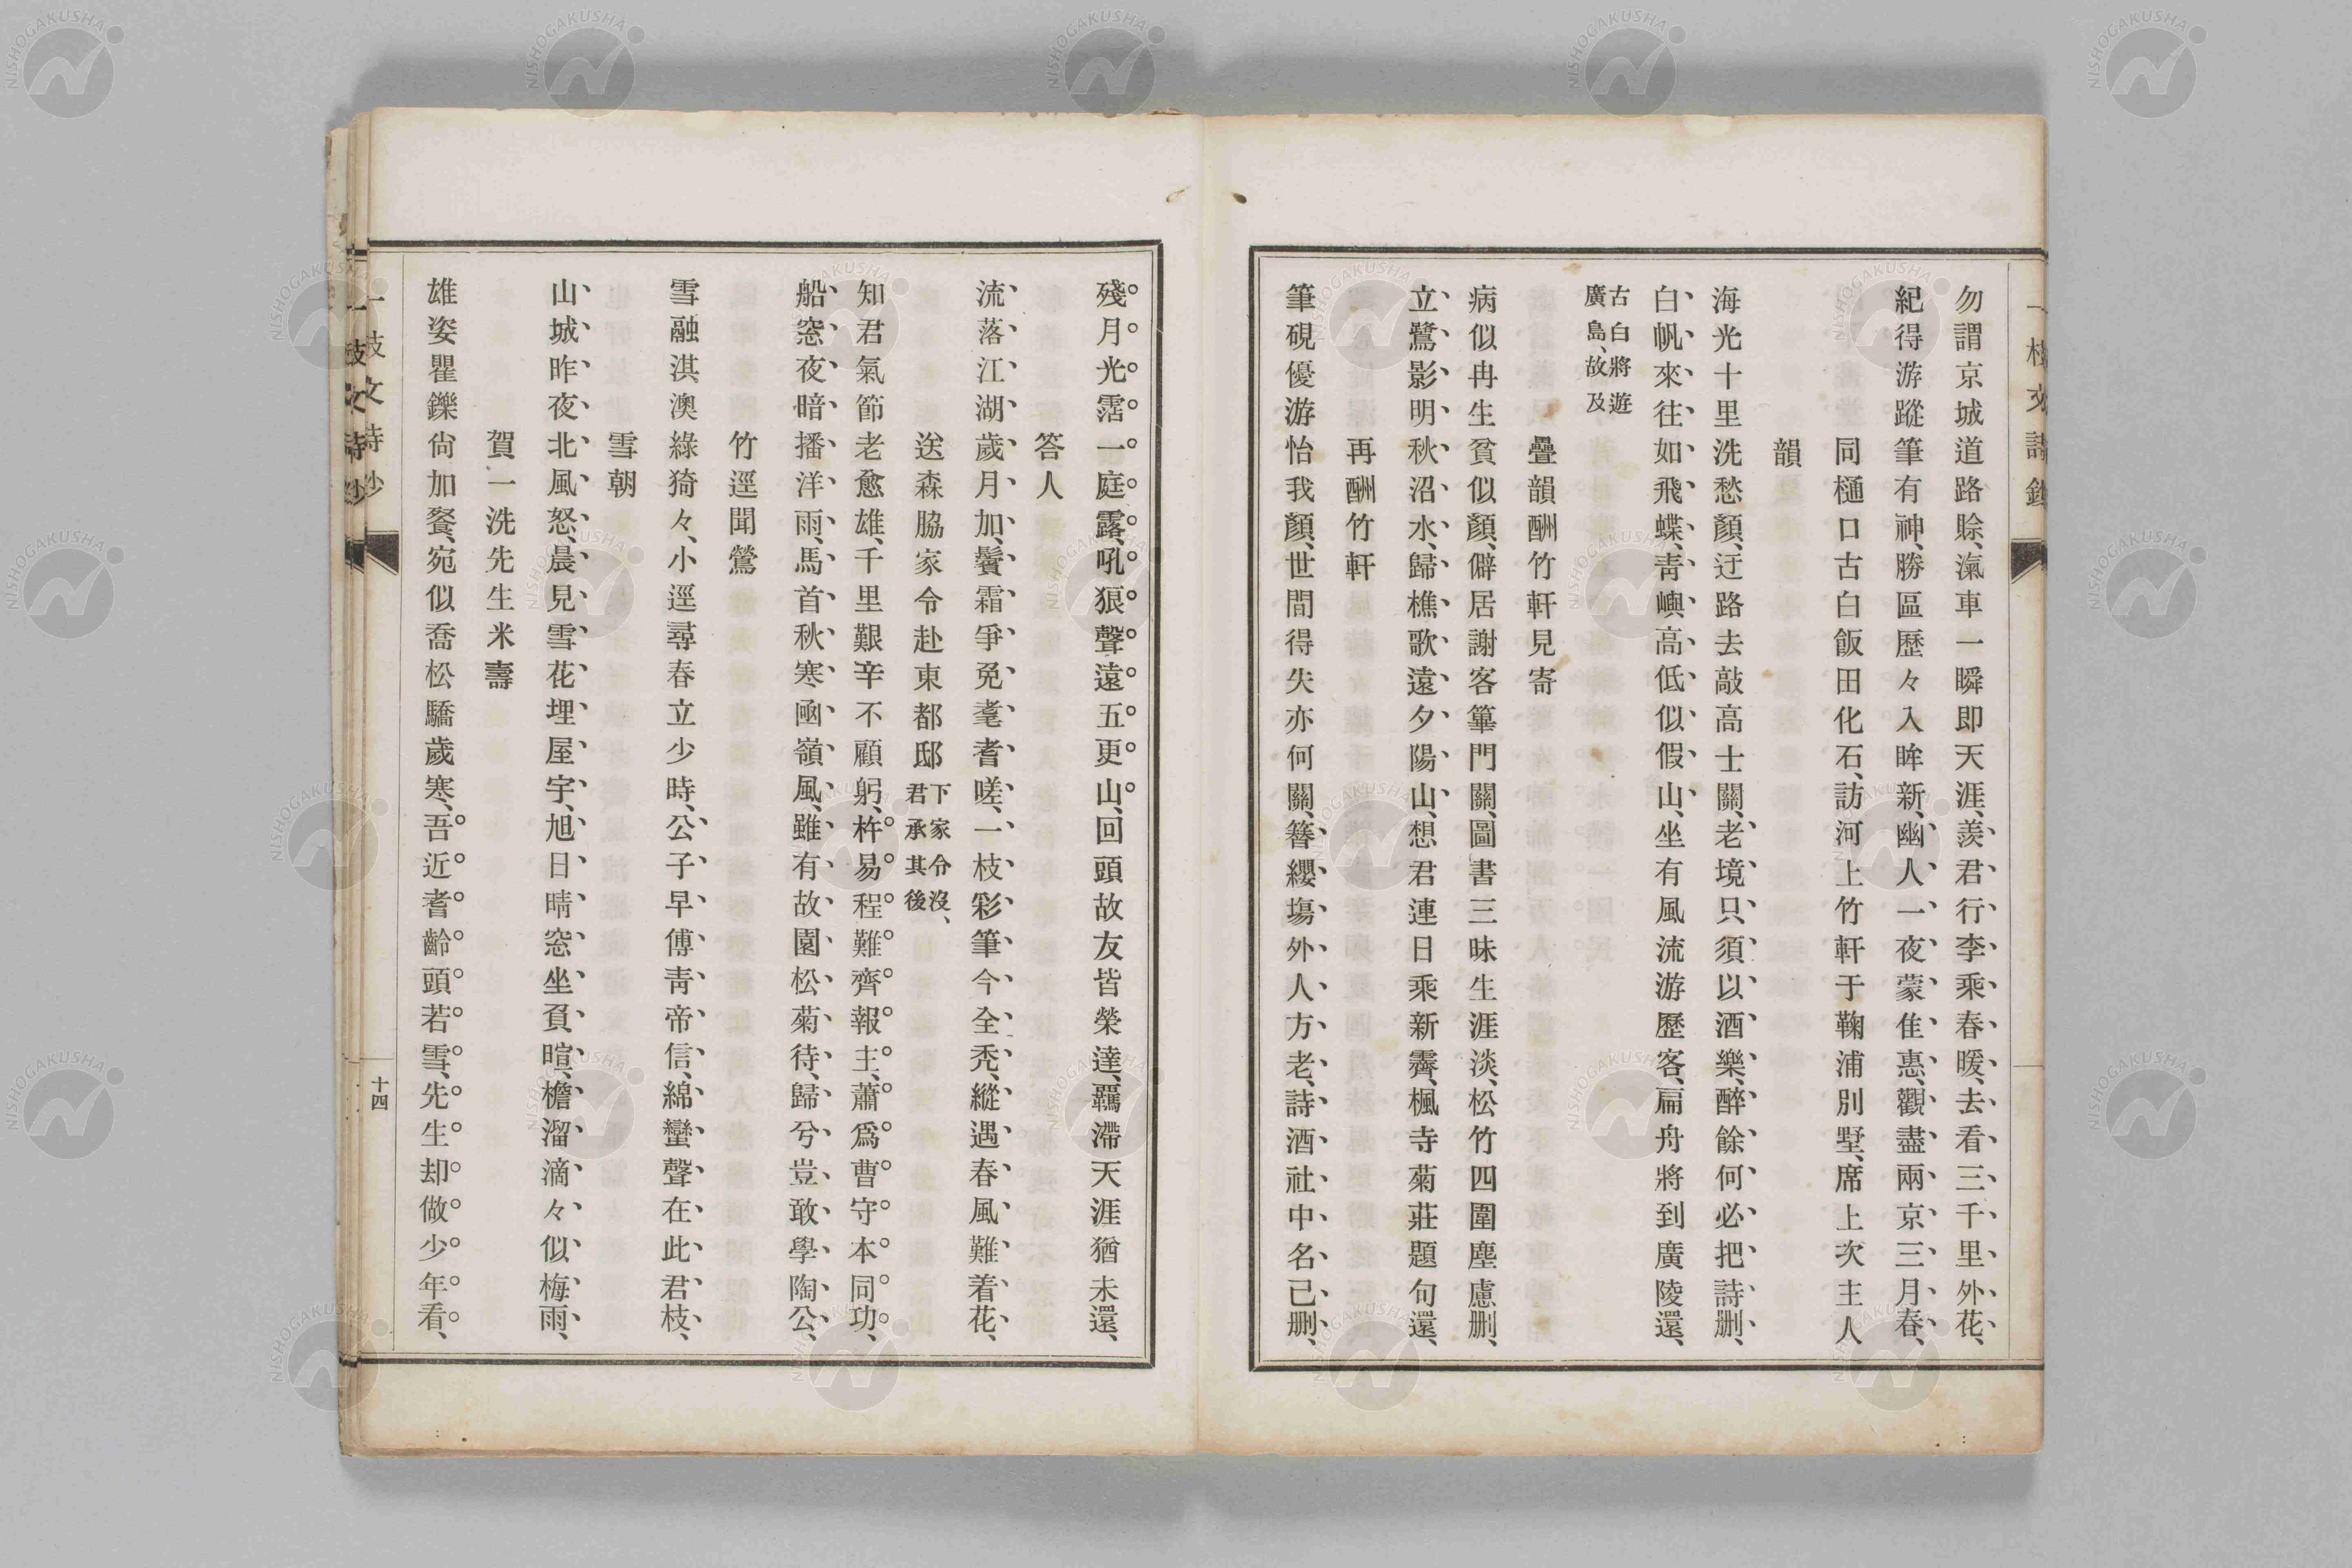 勿謂京城道路賖、滊車一瞬即天涯、羨君行李乘春暖、去看三千里外花、
紀得游蹤筆有神、勝區歷々入眸新、幽人一夜蒙佳惠、觀盡兩京三月春、
同樋口古白飯田化石、訪河上竹軒于鞠浦別墅、席上次主人
韻
海光十里洗愁顏、迂路去敲高士關、老境只須以酒樂、醉餘何必把詩刪、
白帆來往如飛蝶、靑嶼高低似假山、坐有風流游歷客、扁舟將到廣陵還、
古白將遊
廣島、故及
疊韻酬竹軒見寄
病似冉生貧似顏、僻居謝客篳門關、圖書三昧生涯淡、松竹四圍塵慮刪、
立鷺影明秋沼水、歸樵歌遠夕陽山、想君連日乘新霽、楓寺菊莊題句還、
再酬竹軒
筆硯優游怡我顏、世間得失亦何關、簪纓塲外人方老、詩酒社中名已刪、
殘月光霑一庭露、吼狼聲遠五更山、回頭故友皆榮達、羈滯天涯猶未還、
答人
流落江湖歲月加、鬢霜爭免耄耆嗟、一枝彩筆今全禿、縱遇春風難着花、
送森脇家令赴東都邸
下家令沒、
君承其後
知君氣節老愈雄、千里艱辛不顧躬、杵易程難齊報主、蕭爲曹守本同功、
船窓夜暗播洋雨、馬首秋寒凾嶺風、雖有故園松菊待、歸兮豈敢學陶公、
竹逕聞鶯
雪融淇澳綠猗々、小逕尋春立少時、公子早傅靑帝信、綿蠻聲在此君枝、
雪朝
山城昨夜北風怒、晨見雪花埋屋宇、旭日晴窓坐負暄、檐溜滴々似梅雨、
賀一洗先生米壽
雄姿矍鑠尙加餐、宛似喬松驕歲寒、吾近耆齡頭若雪、先生却做少年看、
一枝文詩鈔
十四